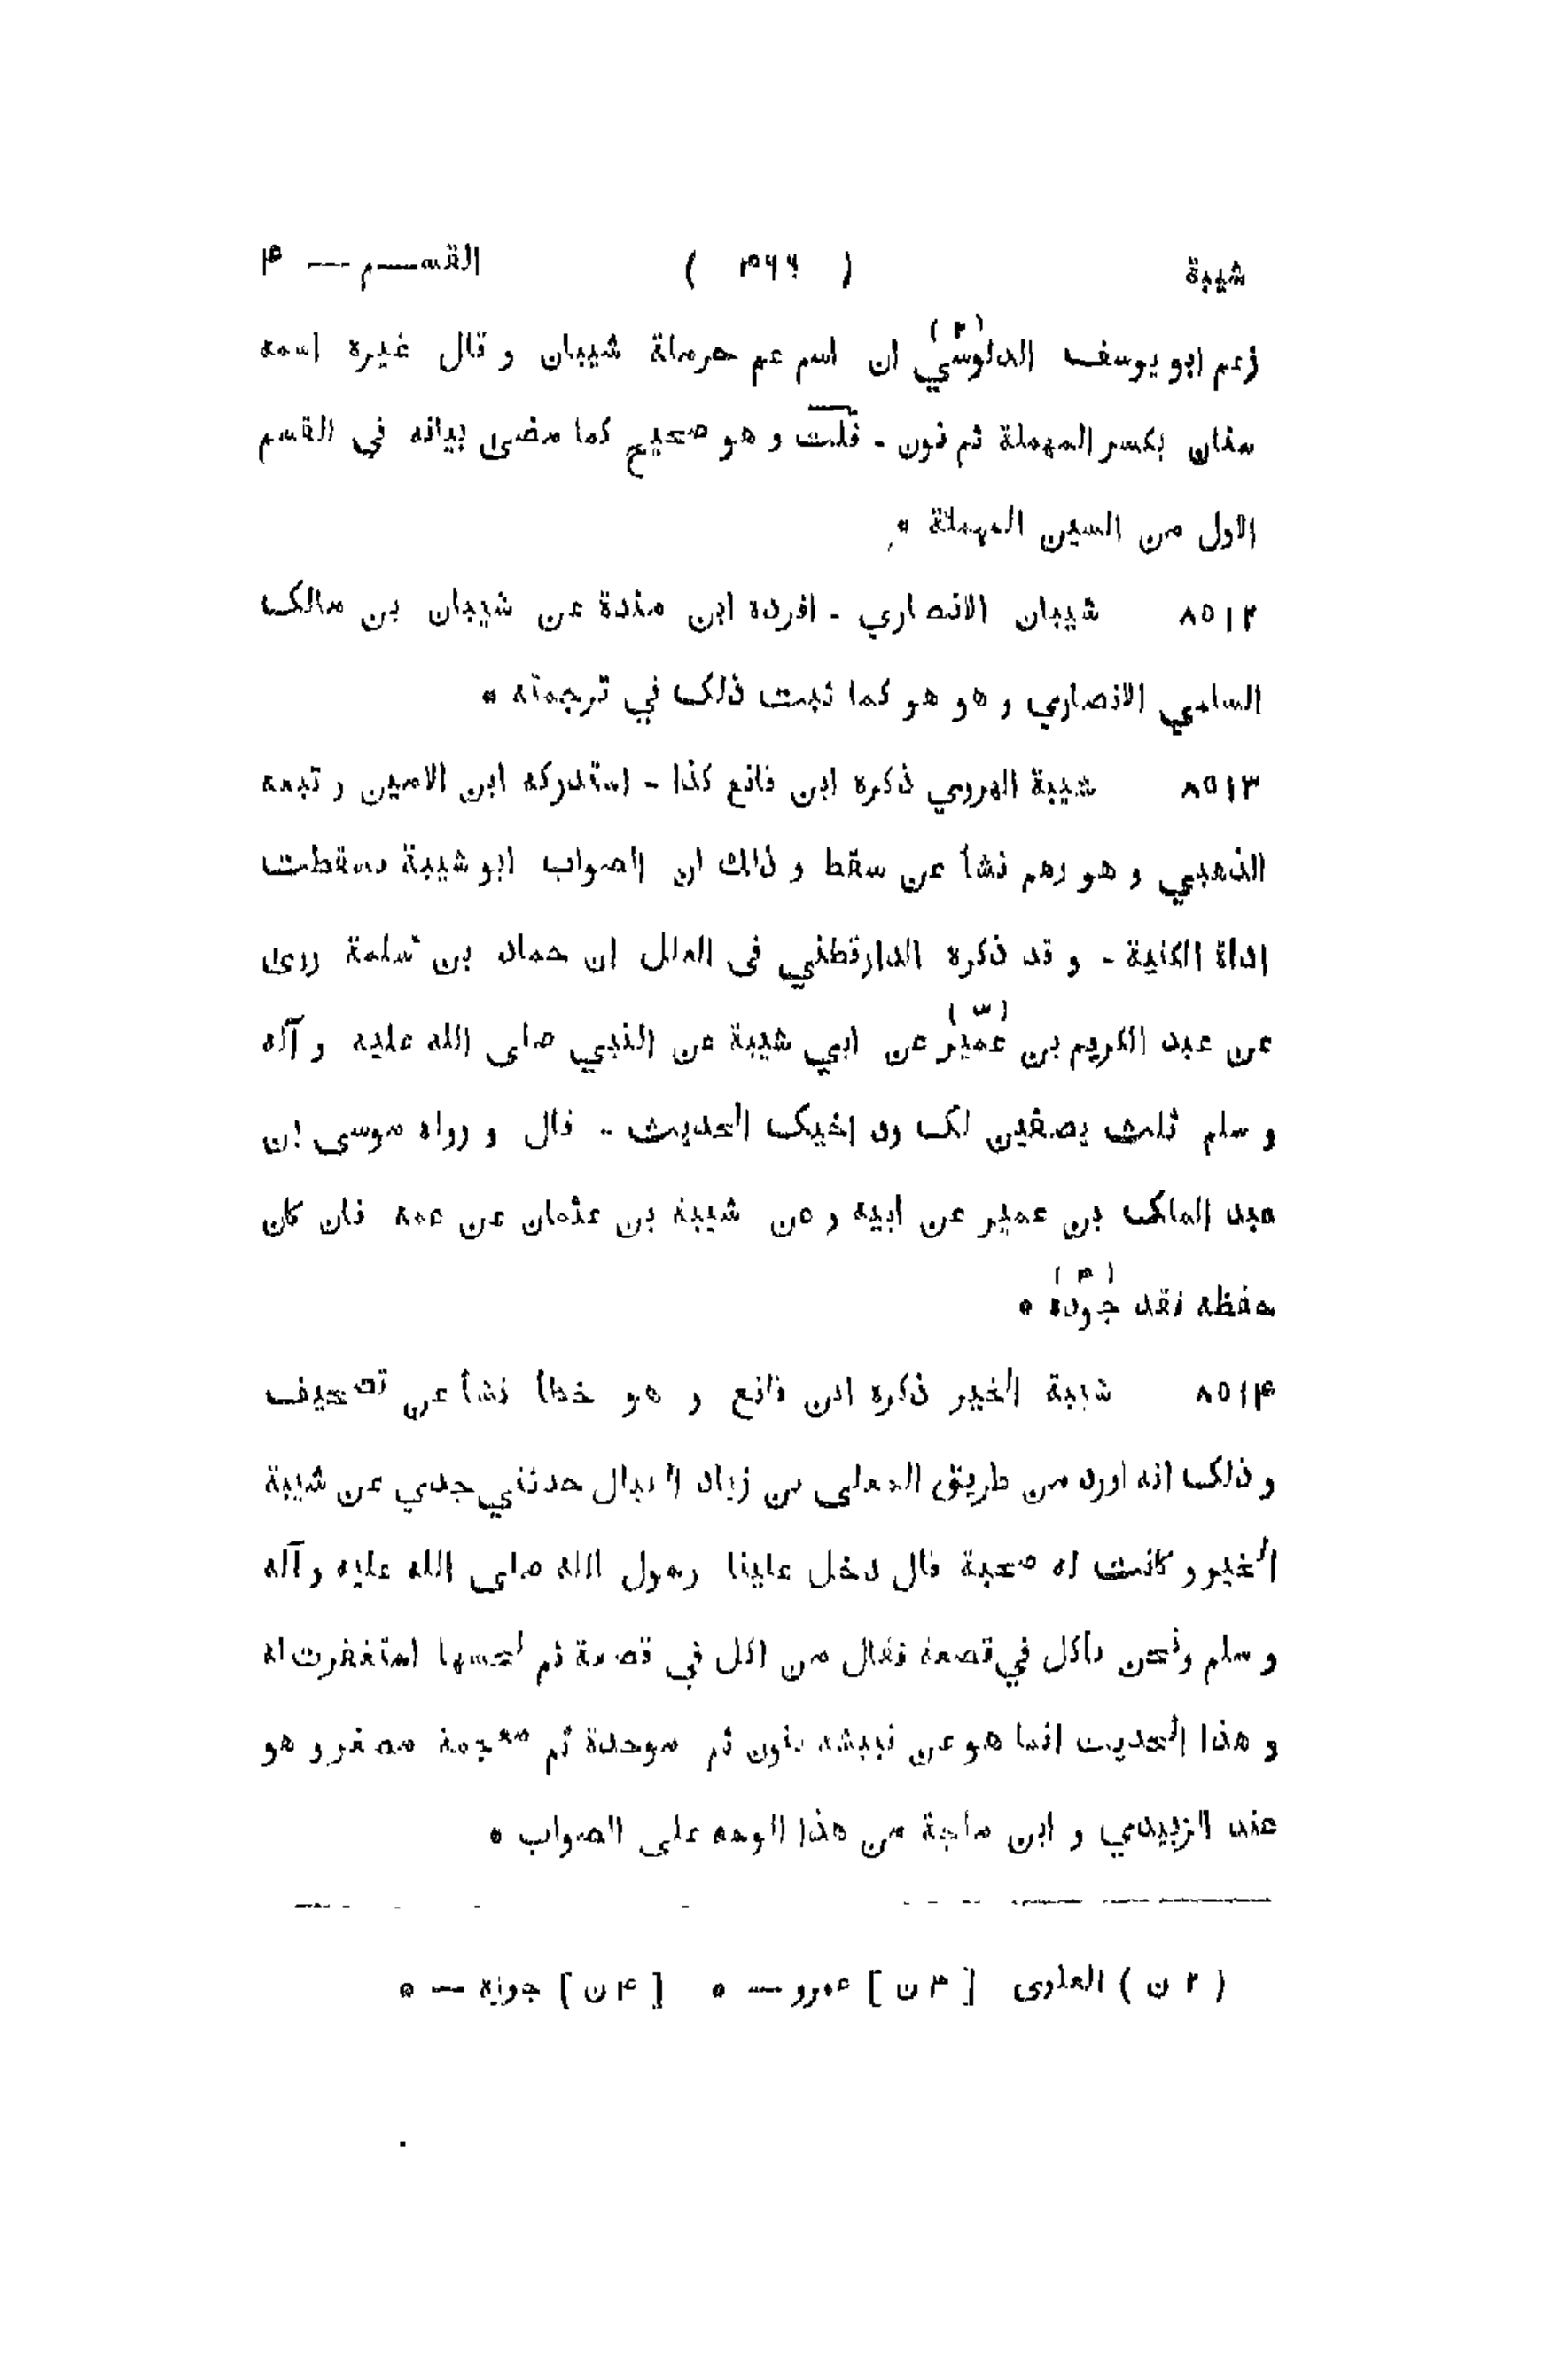 شيبة ( ۴۶۶ ) القســـم — ۴
زعم ابو يوسف الدلوسي (۲) ان اسم عم حرملة شيبان و قال غيره اسمه
سنان بكسر المهملة ثم نون - قلت و هو صحيح كما مضى بيانه في القسم
الاول من السين المهملة *
۸۵۱۲ شيبان الانصاري - افرده ابن مندة عن شيبان بن مالک
السلمي الانصاري و هو هو كما ثبت ذلک في ترجمته *
۸۵۱۳ شيبة المهري ذكره ابن قانع كذا - استدركه ابن الامين و تبعه
الذهبي و هو وهم نشأ عن سقط و ذلك ان الصواب ابو شيبة فسقطت
اداة الكنية - و قد ذكره الدارقطني فى العلل ان حماد بن سلمة روى
عن عبد الكريم بن عمير (۳) عن ابي شيبة عن النبي صلى الله عليه و آله
و سلم ثلث يصفين لک ود اخيک الحديث - قال و رواه موسى بن
عبد الملک بن عمير عن ابيه و عن شيبة بن عثمان عن عمه فان كان
حفظه فقد جوده (۴) *
۸۵۱۴ شيبة الخير ذكره ابن قانع و هو خطأ نشأ عن تصحيف
و ذلک انه اورد من طريق المعلى بن زياد النبال حدثني جدي عن شيبة
الخير و كانت له صحبة قال دخل علينا رسول الله صلى الله عليه و آله
و سلم و نحن نأكل في قصعة فقال من اكل في قصعة ثم لحسها استغفرت له
و هذا الحديث انما هو عن نبيشه بنون ثم موحدة ثم معجمة مصغر و هو
عند الزبيدي و ابن ماجة من هذا الوجه على الصواب *
( ۲ ن ) العلوى [ ۳ ن ] عمرو — * [ ۴ ن ] جوزه — *